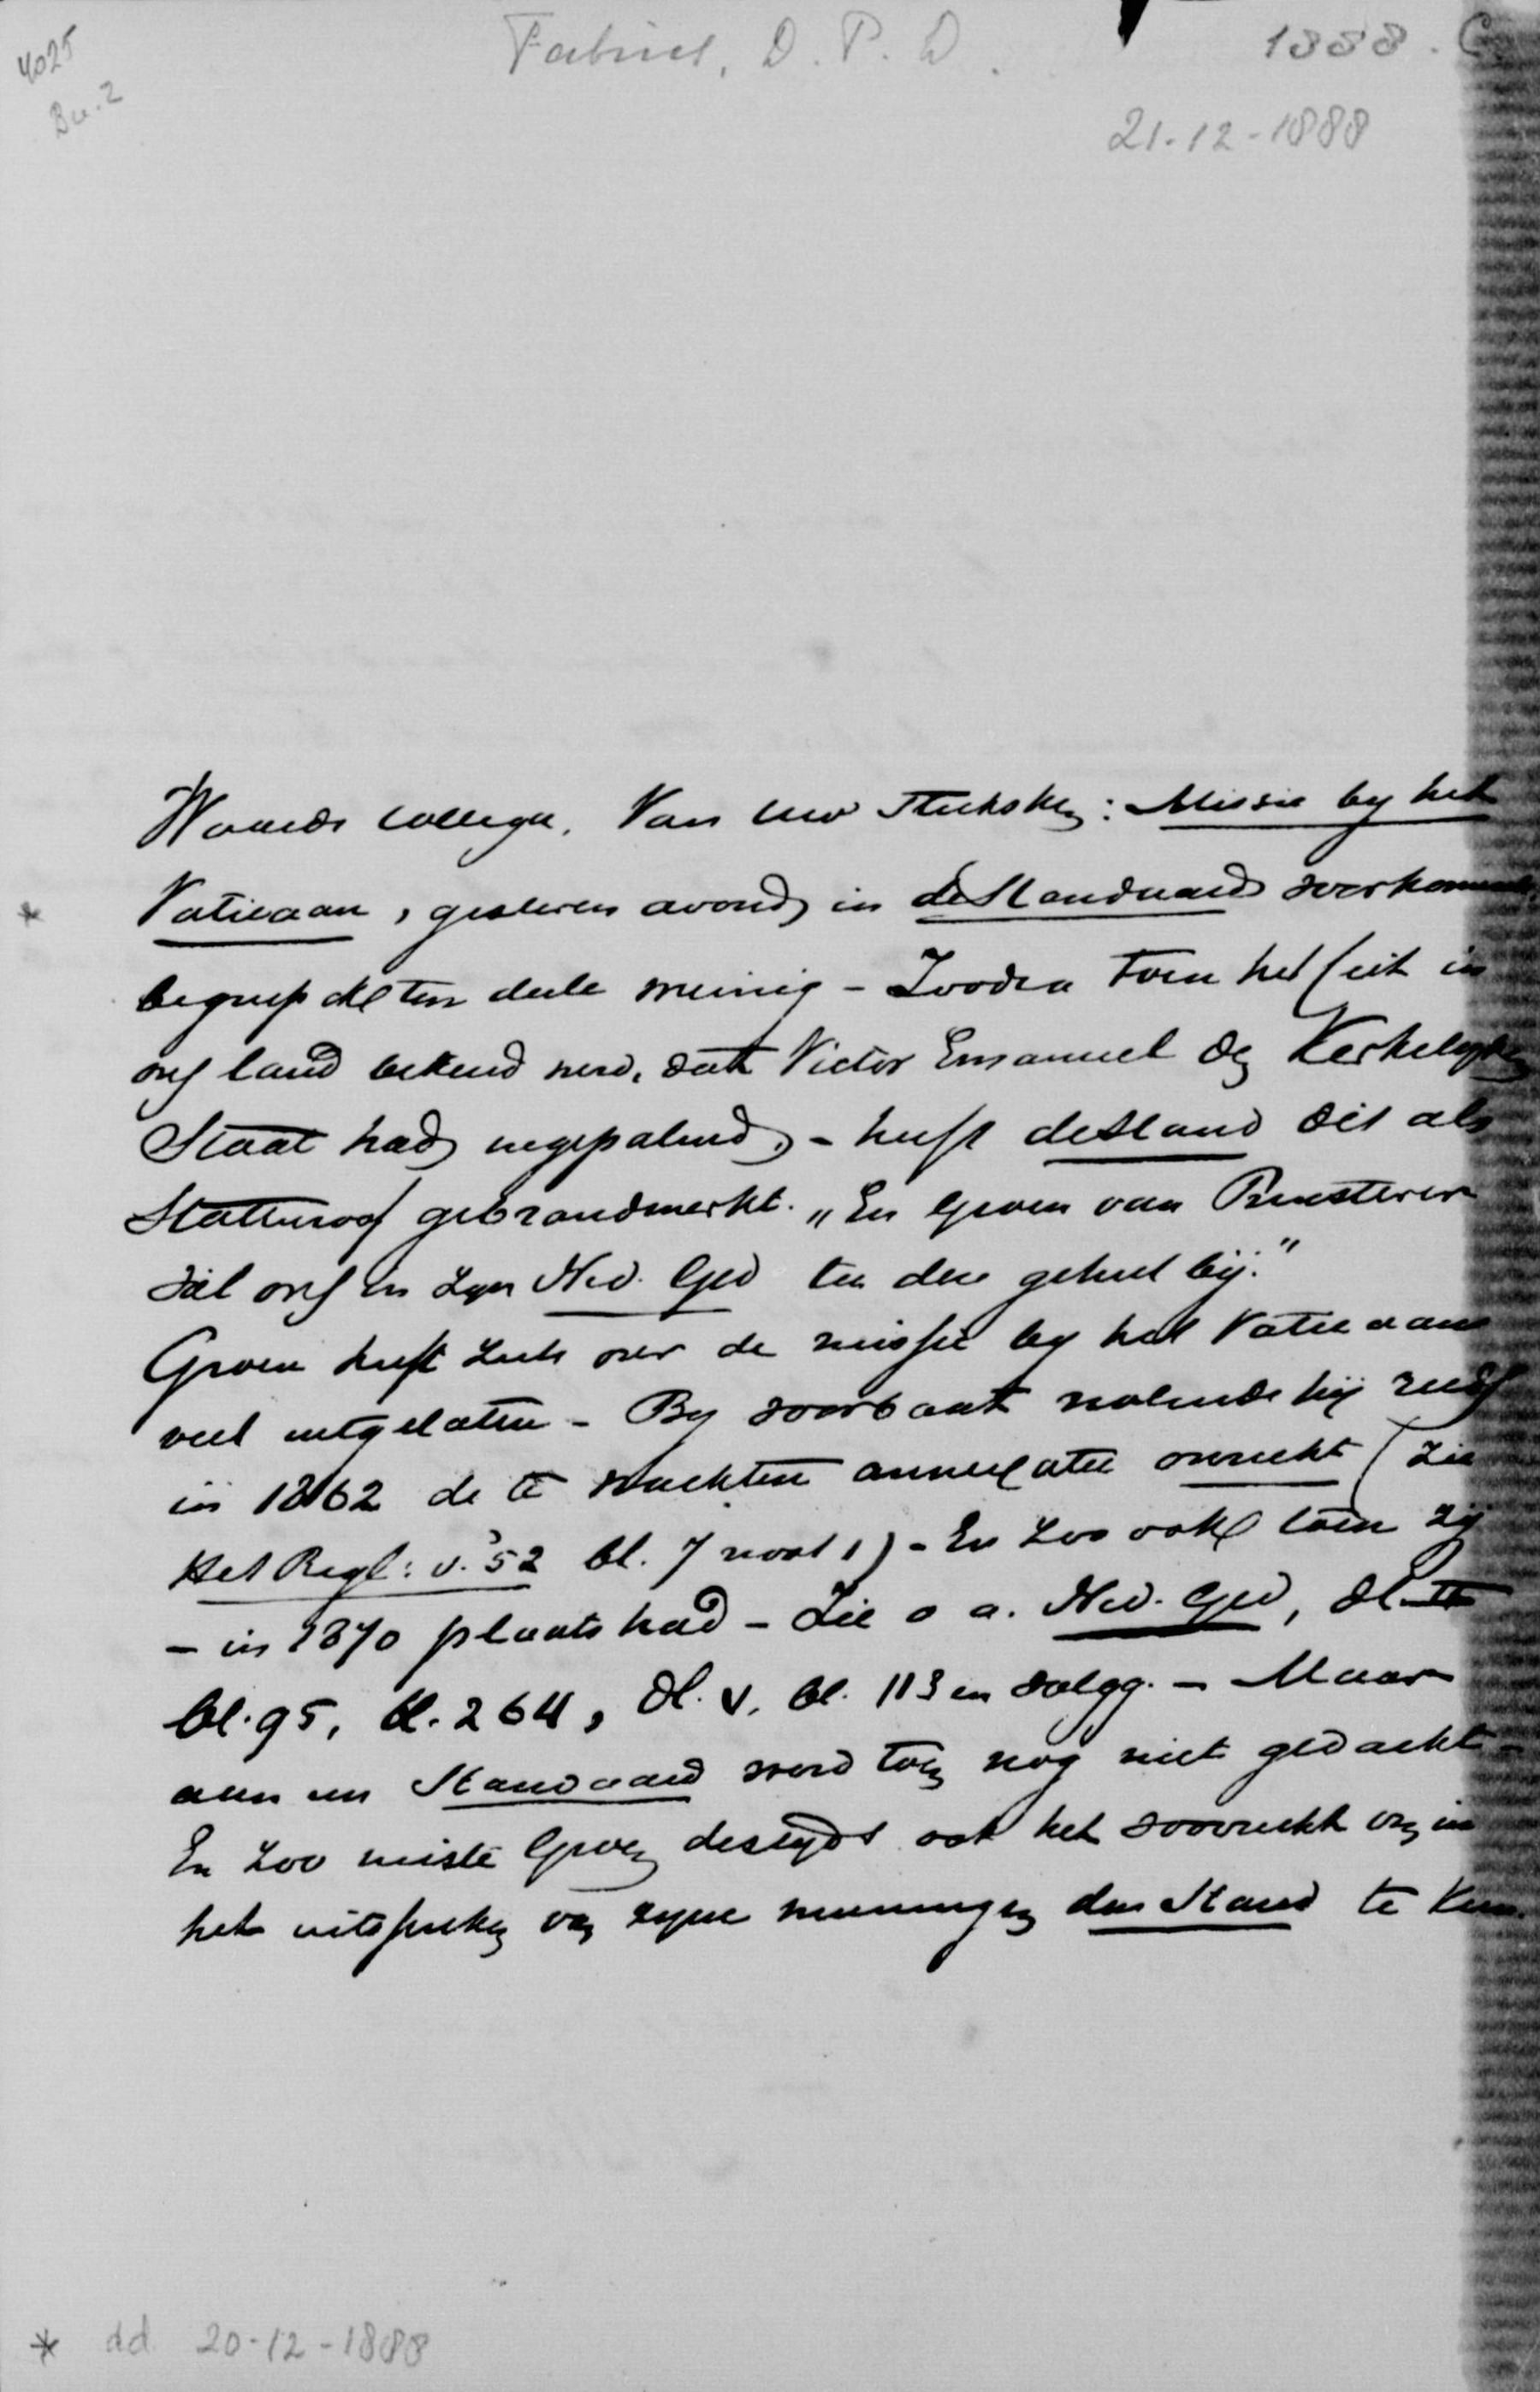 4025
Bu. 2
Fabius, D. P. D.
1888. C
21-12-1888
Waarde Collega, Van uw stukske: Missie by het
Vaticaan, gisteren avond in de Standaard voorkomende,
begreep ik ten deele weinig - Zoodra toen het feit in
ons land bekend werd, dat Victor Emanuel de Kerkelyke
Staat had ingepalmd, - heeft de Stand dit als
Statenroof gebrandmerkt. "En Groen van Prinsterer
viel ons in zyn Ned. Ged ten dien geheel bij."
Groen heeft zich over de missie by het Vaticaan
veel uitgelaten - By voorbaat noemde hij reeds
in 1862 de te wachten annexatie onrecht (zie
Het Regl: v. '52 bl. 7 noot 1) - En zoo ook toen zij
- in 1870 plaats had - Zie o a. Ned. Ged, dl. II
bl. 95, bl. 264, dl. V, bl. 113 en volgg. - Maar
aan een Standaard werd toen nog niet gedacht -
En zoo miste Groen destyds ook het voorrecht om in
het uitspreken van zyne meeningen den Stand te
* dd. 20-12-1888